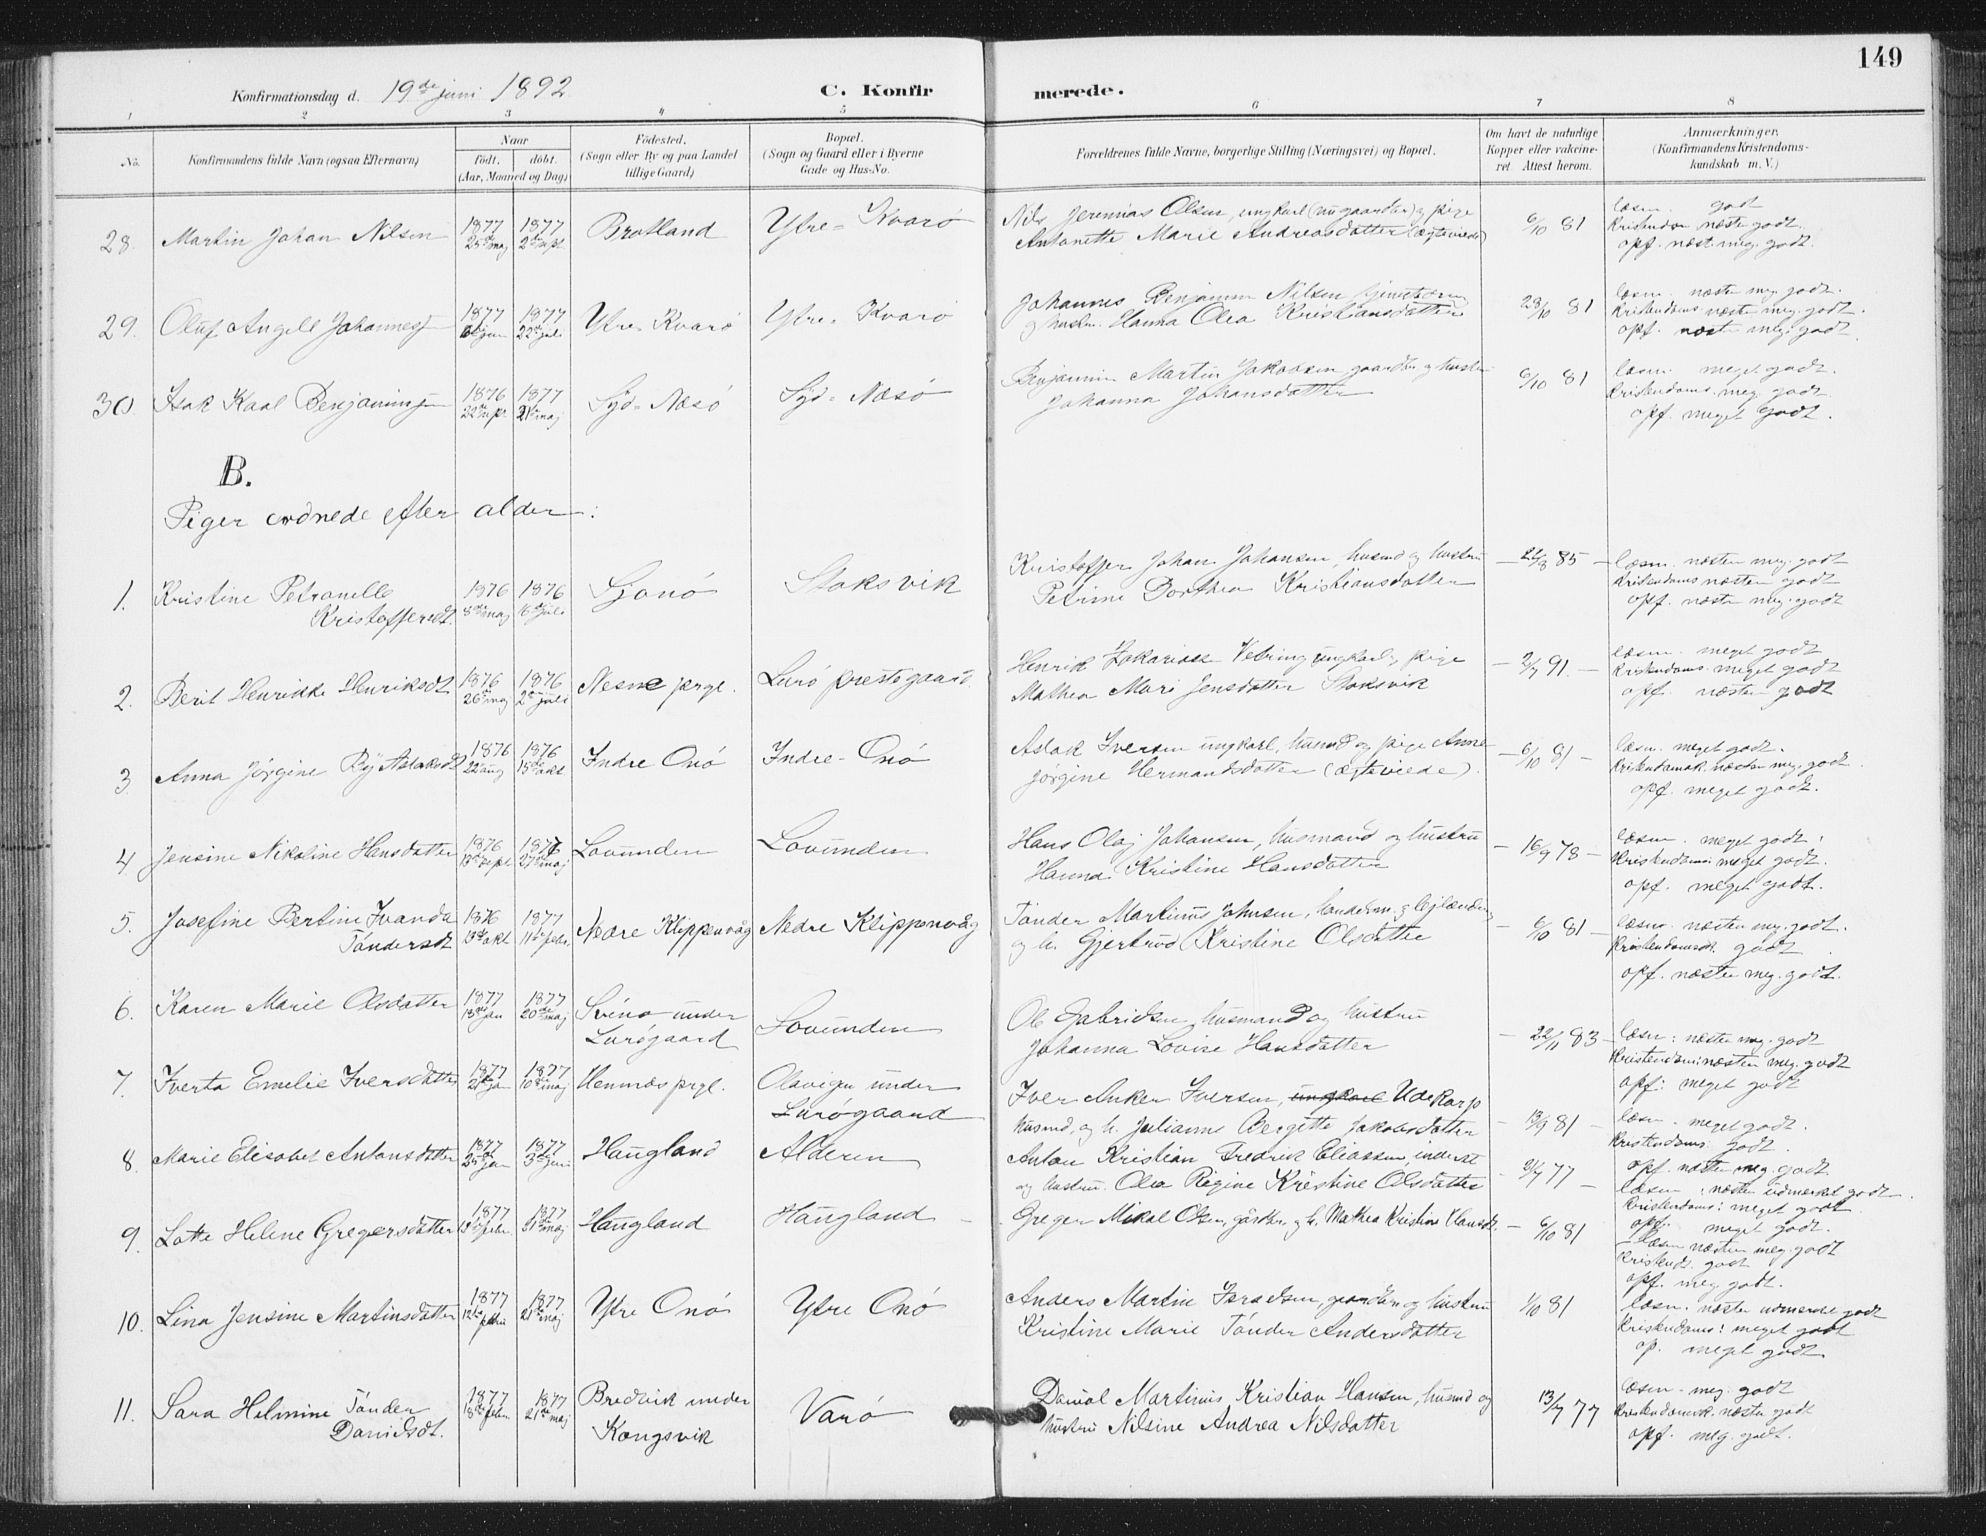 149
Konfirmationsdag d. 19de juni 1892
C. Konfirmerede.
1 2 3 4 5 6 7 8
No. Konfirmandens fulde Navn (ogsaa Efternavn)
Naar
födt. döbt.
(Aar, Maaned og Dag)
Födested.
(Sogn eller By og paa Landet
tillige Gaard)
Bopæl.
(Sogn og Gaard eller i Byerne
Gade og Hus-No.
Forældrenes fulde Navne, borgerlige Stilling (Næringsvei) og Bopæl.
Om havt de naturlige
Kopper eller vakcine-
ret. Attest herom.
Anmærkninger.
(Konfirmandens Kristendoms-
kundskab m. V.)
28. Martin Johan Nilsen 1877 25de maj 1877 2den spt. Bratland Ytre-Kvarö
Nils Jeremias Olsen, ungkarl (nu gaardbr) og pige
Antonette Marie Andreasdatter (ægteviede)
6/10 81
læsn. godt
Kristendom næsten godt.
opf. næst. meg. godt.
29. Oluf Angell Johannes 1877 juni 1877 22de juli Ytre Kvarö Ytre-Kvarö
Johannes Benjamin Nilsen
og hustru Hanna Olea Kristiansdatter
23/10 81
læsn. næsten meg. godt.
Kristendoms næsten meg. godt.
opf. næsten meg. godt.
30 Isak Kaal Benjaminsen 1876 22de spt 1877 21de maj Syd-Næsö Syd-Næsö
Benjamin Martin Jakobsen gaardbr og hustru
Johanna Johansdatter
6/10 81
læsn. meget godt.
Kristendoms. meg. godt
opf. meget godt.
B.
Piger ordnede efter alder:
1. Kristine Petronelle
Kristoffersdt. 1876 8de maj 1876 16de juli Sjonö Stoksvik
Kristoffer Johan Johansen, husmd og hustru
Petrine Dorthea Kristiansdatter
22/8 85
læsn. næsten meg. godt
Kristendoms næsten godt
opf. næsten meg. godt
2. Berit Henrikke Henriksdt 1876 26de maj 1876 2den juli Nesne prgl. Lurö prestegaard
Henrik Zakariasen Vebring ungkarl og pige
Mathea Mari Jensdatter Stoksvik
2/7 91
læsn. meget godt
Kristendoms meget godt
opf. næsten godt
3 Anna Jörgine By Aslaksdt 1876 22de aug 1876 15de okt Indre Onö Indre-Onö
Aslak Iversen ungkarl, husmd og pige Anne
Jörgine Hermansdatter (ægteviede).
6/10 81
læsn. meget godt.
Kristendomsk. næsten meg. godt.
opf. meget godt.
4 Jensine Nikoline Hansdatter 1876 13de sept 1877 27de maj Lovunden Lovunden
Hans Olaj Johansen, husmand og hustru
Hanna Kristine Hansdatter
16/9 78
læsn. meget godt.
Kristendoms: meget godt.
opf. meget godt.
5. Josefine Bertine Ivanda
Töndersdt 1876 13de okt 1877 11te febr. Nedre Klippenvåg Nedre Klippenvåg
Tönder Martinus Johnsen, handelsm. og lejlænding
og h. Gjertrud Kristine Olsdatter
6/10 81
læsn. næsten meg. godt.
Kristendomsk. godt
opf. næsten meg. godt.
6. Karen Marie Olsdatter 1877 18de jan 1877 20de maj Svino under
Lurögaard Lovunden
Ole Gabrielsen husmand og hustru
Johanna Lovise Hansdatter
22/11 83
læsn: næsten meg. godt
Kristendom: næsten meg. godt
opf: meget godt
7. Iverta Emelie Iversdatter 1877 21de jan 1877 10de maj Hemnæs prgl. Olavigen under
Lurögaard
Iver Anker Iversen, ungkarl Udekarp
husmd, og h. Julianne Bergitte Jakobsdatter
13/9 81
læsn. meget godt.
Kristendoms godt.
opf. næsten meg. godt.
8. Marie Elisabet Antonsdatter 1877 25de jan 1877 3de juni Haugland Alderen
Anton Kristian Fredrik Eliassen, inderst
og hustru Olea Regine Kristine Olsdatter
9/7 77
læsn: næsten udmerket godt.
Kristendoms: meget godt
opf. meget godt.
9. Lotte Helene Gregersdatter 1877 13de febr. 1877 21de maj Haugland Haugland
Greger Mikal Olsen, gårdbr. og h. Mathea Kristine Hansdt.
6/10 81
læsn næsten meg. godt
Kristend. godt
opf. meg godt.
10. Lina Jensine Martinsdatter 1877 12te febr 1877 21de maj Ytre Onö Ytre Onö
Anders Martin Israelsen gaardbr. og hustru
Kristine Marie Tönder Andersdatter
1/10 81
læsn. næsten udmerket godt
Kristendoms: meget godt
op. meget godt
11. Sara Helmine Tönder
Danielsdt. 1877 18de febr. 1877 21de maj Bredvik under
Kongsvik Varö
Danial Martinus Kristian Hansen, husmd og
hustru Nilsine Andrea Nilsdatter
13/7 77
læsn. meg. godt
Kristendomsk. næsten godt
opf. meg. godt.